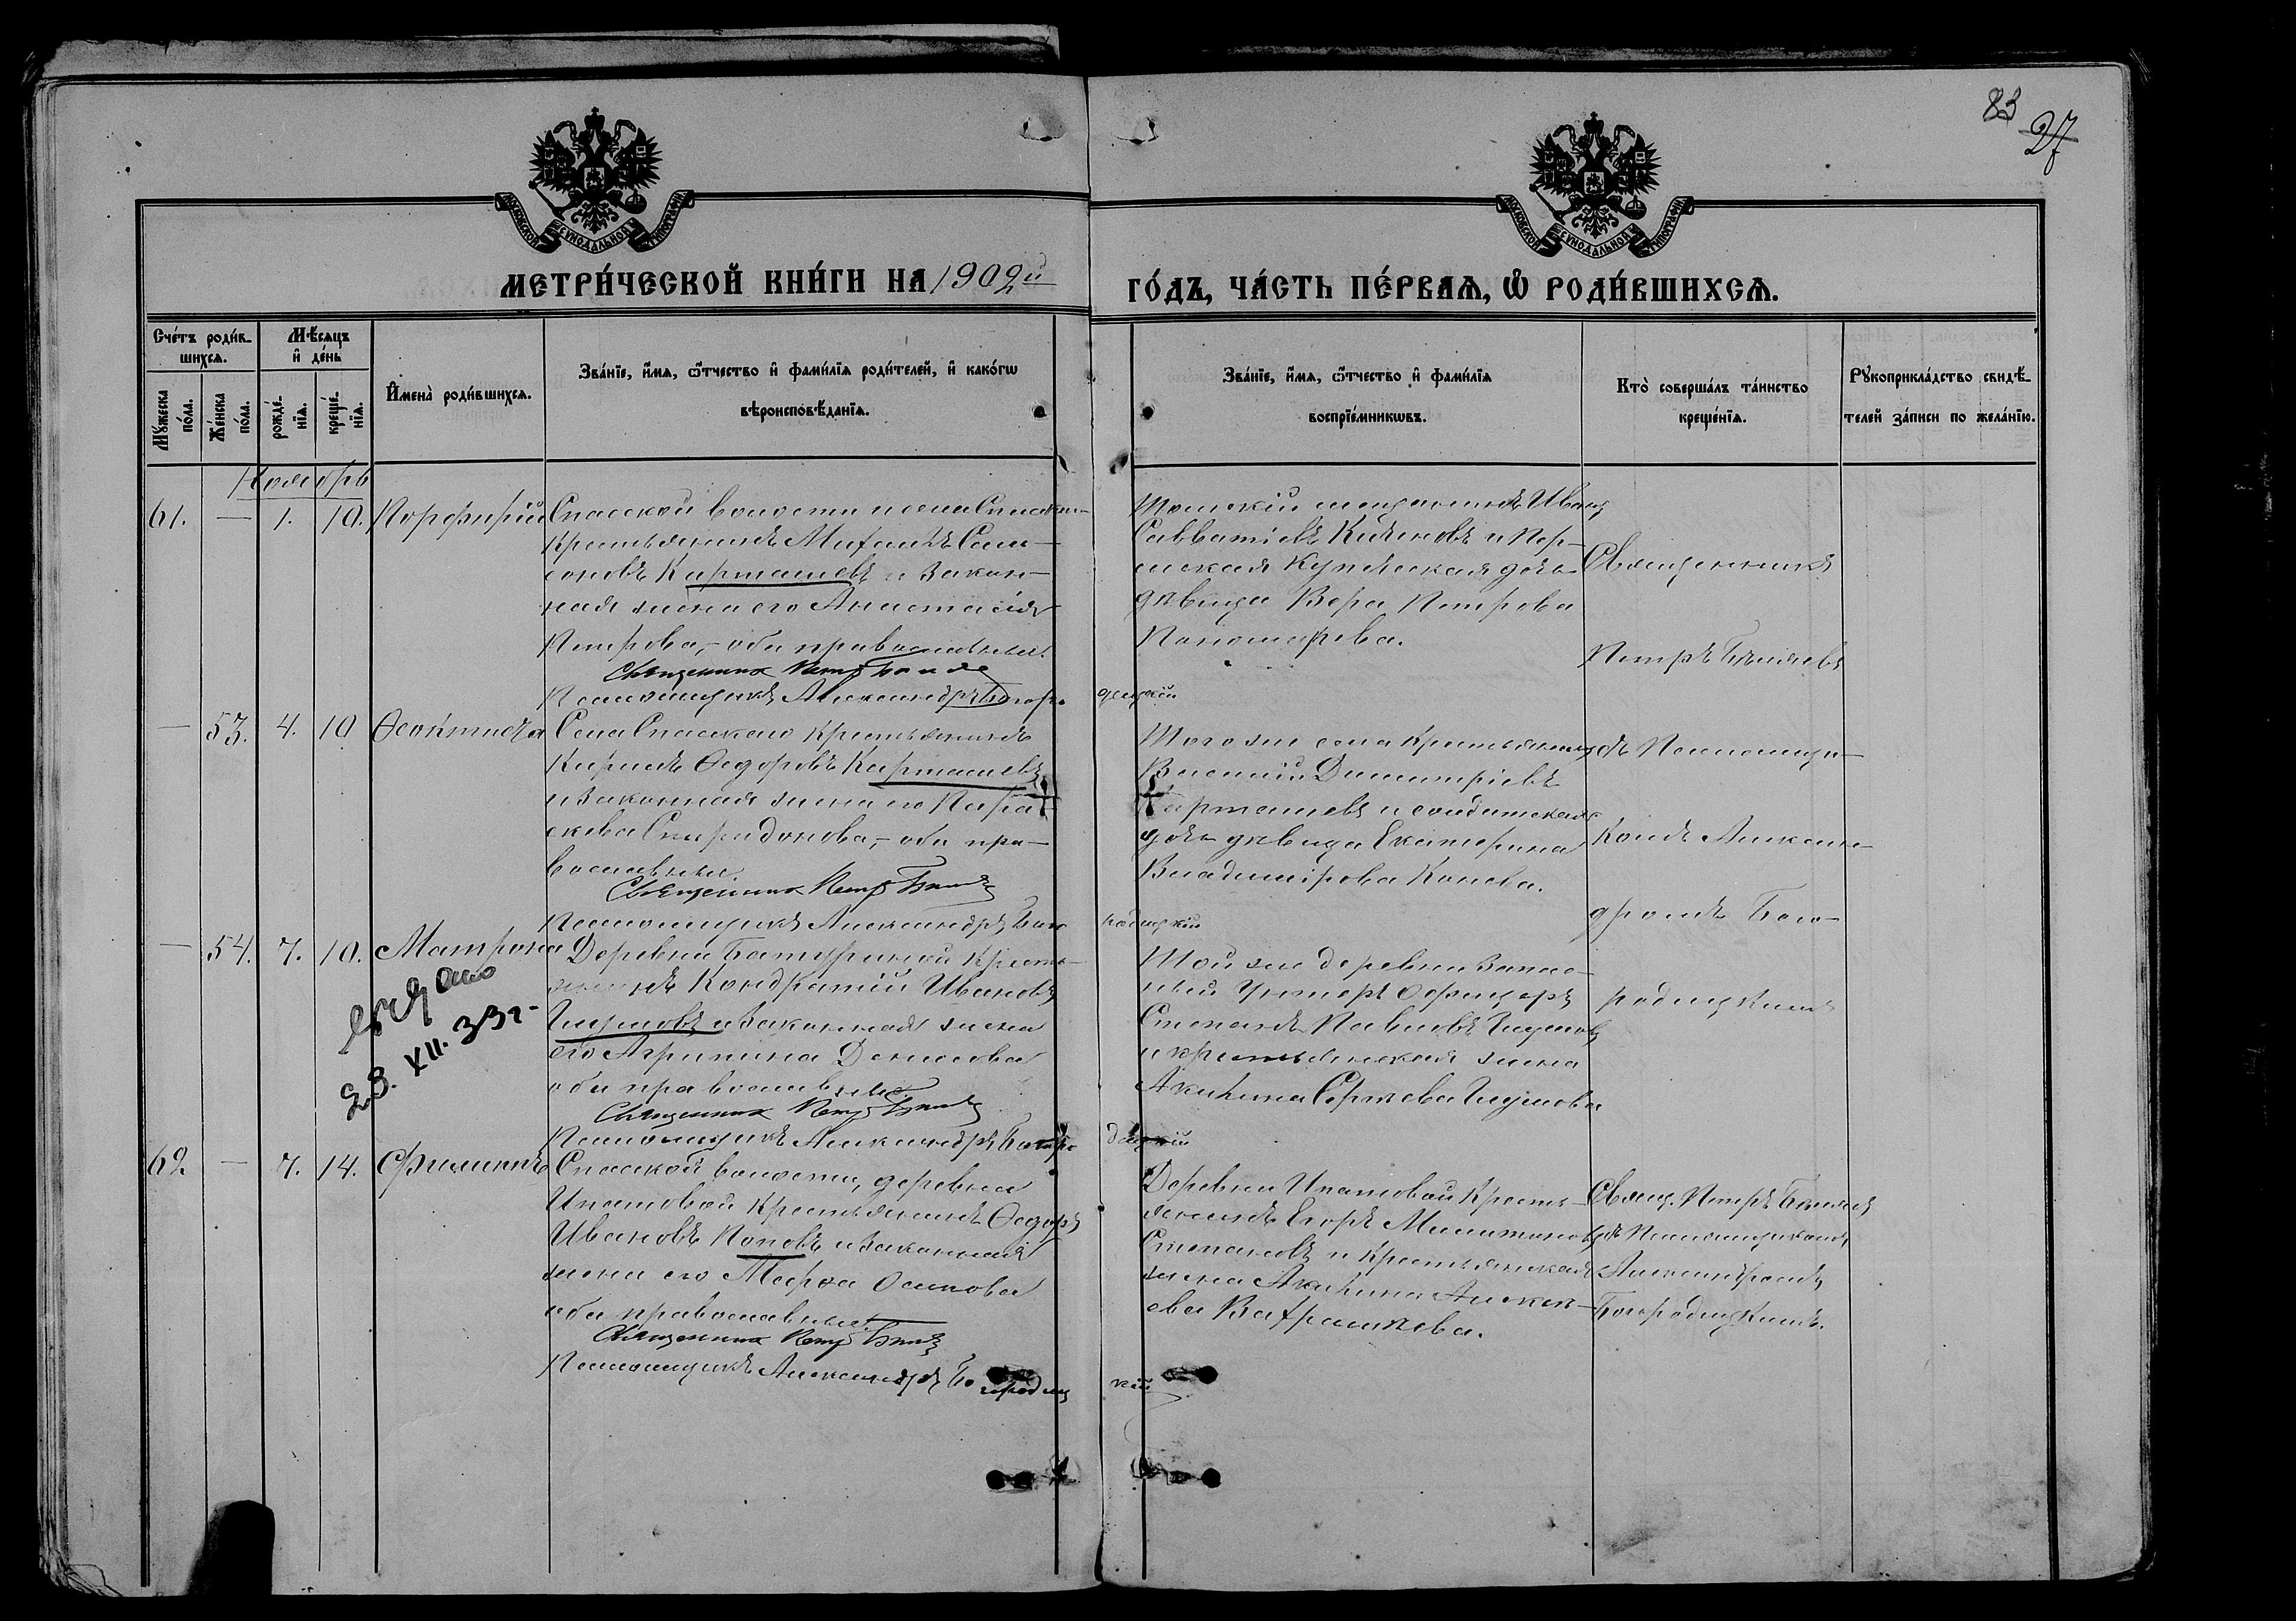 83
27
МОСКОВСКОЙ СУНОДАЛЬНОЙ ТИПОГРАФІИ
МОСКОВСКОЙ СУНОДАЛЬНОЙ ТИПОГРАФІИ
МЕТРИ́ЧЕСКОЙ КНИ́ГИ НА 1902й
ГО́ДЪ, ЧА́СТЬ ПЕ́РВАѦ, Ѡ РОДИ́ВШИХСѦ.
Сче́тъ роди́в-
шихсѧ.
Мѣ́сѧцъ
и де́нь
Мꙋ́жеска
по́ла.
Же́нска
по́ла.
рожде́-
нїѧ.
креще́-
нїѧ.
Имена̀ роди́вшихсѧ.
Зва́нїе, и́мѧ, ѻ́тчество и фами́лїѧ роди́телей, и како́гѡ
вѣроисповѣ́данїѧ.
Зва́нїе, и́мѧ, ѻ́тчество и фами́лїѧ
воспрїе́мникѡвъ.
Кто̀ соверша́лъ та́инство
креще́нїѧ.
Рꙋкоприкла́дство свидѣ́-
телей за́писи по жела́нїю.
Ноябрь
61. — 1. 10. Порфирій
Спасской волости и села Спасскаго
крестьянинъ Михаилъ Сам-
соновъ Карташевъ и закон-
ная жена его Анастасія
Петрова, - оба православные.
Священник Петр
Псаломщикъ Александръ Богоро
дицкій
Томскій мещанинъ Иванъ
Савватіевъ и Пер-
мская купеческая дочь
дѣвица Вера Петрова
Пономарева.
Священникъ
Петръ Бѣляевъ
— 53. 4. 10 Ѳеоктиста
Села Спасскаго крестьянинъ
Кирилъ Ѳедоровъ Карташевъ
и законная жена его Пара-
скева Спиридонова, - оба пра-
вославные.
Священник Петр
Псаломщикъ Александръ Бого
родицкій
Того же села крестьянинъ
Василій Димитріевъ
Карташевъ и солдатская
дочь дѣвица Екатерина
Владимірова Конева.
съ Псаломщи-
комъ Алексан-
дромъ Бого-
родицкимъ
— 54. 7. 10. Матрона
Деревни Батуриной кресть-
янинъ Кондратій Ивановъ
и законная жена
его Агрипина Денисова
оба православные.
Священник Петр
Псаломщикъ Александръ Богоро
дицкій
Той же деревни запас-
ный унтеръ офицеръ
Степанъ Павловъ
и крестьянская жена
Акилина Сергеева
выдано
23. XII. 33г-
62 — 7. 14. Филиппъ
Спасской волости, деревни
Ипатовой крестьянинъ Ѳедоръ
Ивановъ Поповъ и законная
жена его Марѳа Осипова
оба православные.
Священник Петр
Псаломщикъ Александръ Богородиц
кій
Деревни Ипатовой кресть-
янинъ Егоръ
Степановъ и крестьянская
жена Акилина Алексе-
ева Вахрамеева.
Свящ. Петръ Бѣляевъ
съ Псаломщикомъ
Александромъ
Богородицкимъ.